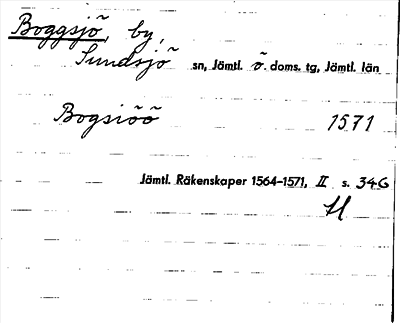 Boggsjö, by,
Sundsjö sn, Jämtl. ö. doms. tg, Jämtl. län
Bogsiöö 1571
Jämtl. Räkenskaper 1564–1571, II s. 346